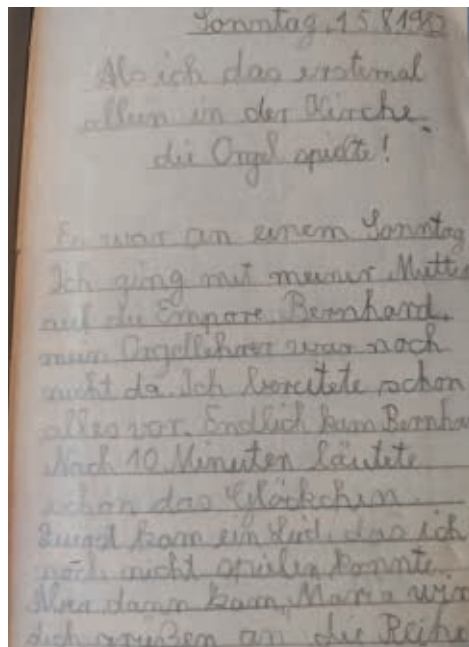 Sonntag, 15.8.19
Als ich das erstemal
allein in der Kirche
die Orgel spielte!
Es war an einem Sonntag
Ich ging mit meiner Mutter
auf die Empore. Bernhard,
mein Orgellehrer war noch
nicht da. Ich bereitete schon
alles vor. Endlich kam Bernha
Nach 10 Minuten läutete
schon das Glöckchen.
Zuerst kam ein Lied, das ich
noch nicht spielen konnte.
Aber dann kam, Maria wir
dich grüßen an die Reihe